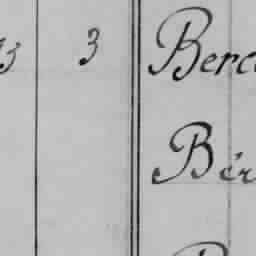 3 Berc
Bér